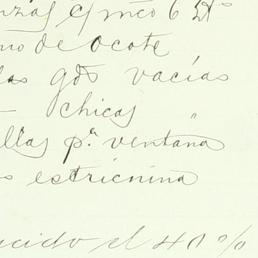 no de ocote
las gds vacías
— chicas "
llas p.ª ventana
s estricnina
ucido el 40 %